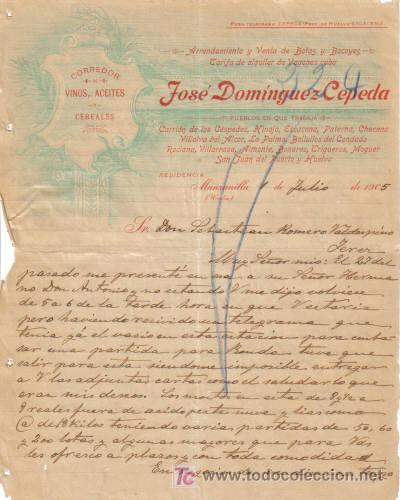 PARA TELEGRAMAS CEPEDA (PROV. DE HUELVA) ESCACENA
Arrendamiento y Venta de Botas y Bocoyes
Tarifa de alquiler de Vagones cuba
CORREDOR
DE
VINOS, ACEITES
Y
CEREALES
José Domínguez Cepeda
PUEBLOS EN QUE TRABAJA
Carrión de los Céspedes, Hinojo, Escacena, Paterna, Chucena
Villalva del Alcor, La Palma, Bollullos del Condado
Rociana, Villarrasa, Almonte, Bonares, Trigueros, Moguer
San Juan del Puerto y Huelva
RESIDENCIA
Manzanilla 1 Julio de 1905
(Huelva)
Sr. Don Sebastian Romero Valdespino
Jerez
Muy Señor mio: El 28 del
pasado me presenté en esa a su Señor Herma
no Don Antonio y no estando V me dijo volviera
de 5 a 6 de la tarde hora en que V estaria
pero haviendo recivido un telegrama que
tenia ya el vacio en esta estacion para emba
sar una partida para Ronda tuve que
salir para esta siendome imposible entregar
a V las adjuntas cartas como el saludarlo que
eran mis deseos. Los mostos en esta de 8½ a
9 reales fuera de acido peste nueva y lias como
@ de 18 kilos teniendo varias partidas de 50, 60
y 200 botas y algunas mayores que para Vds
les ofresco a plazos y con toda comodidad
En
todocoleccion.net